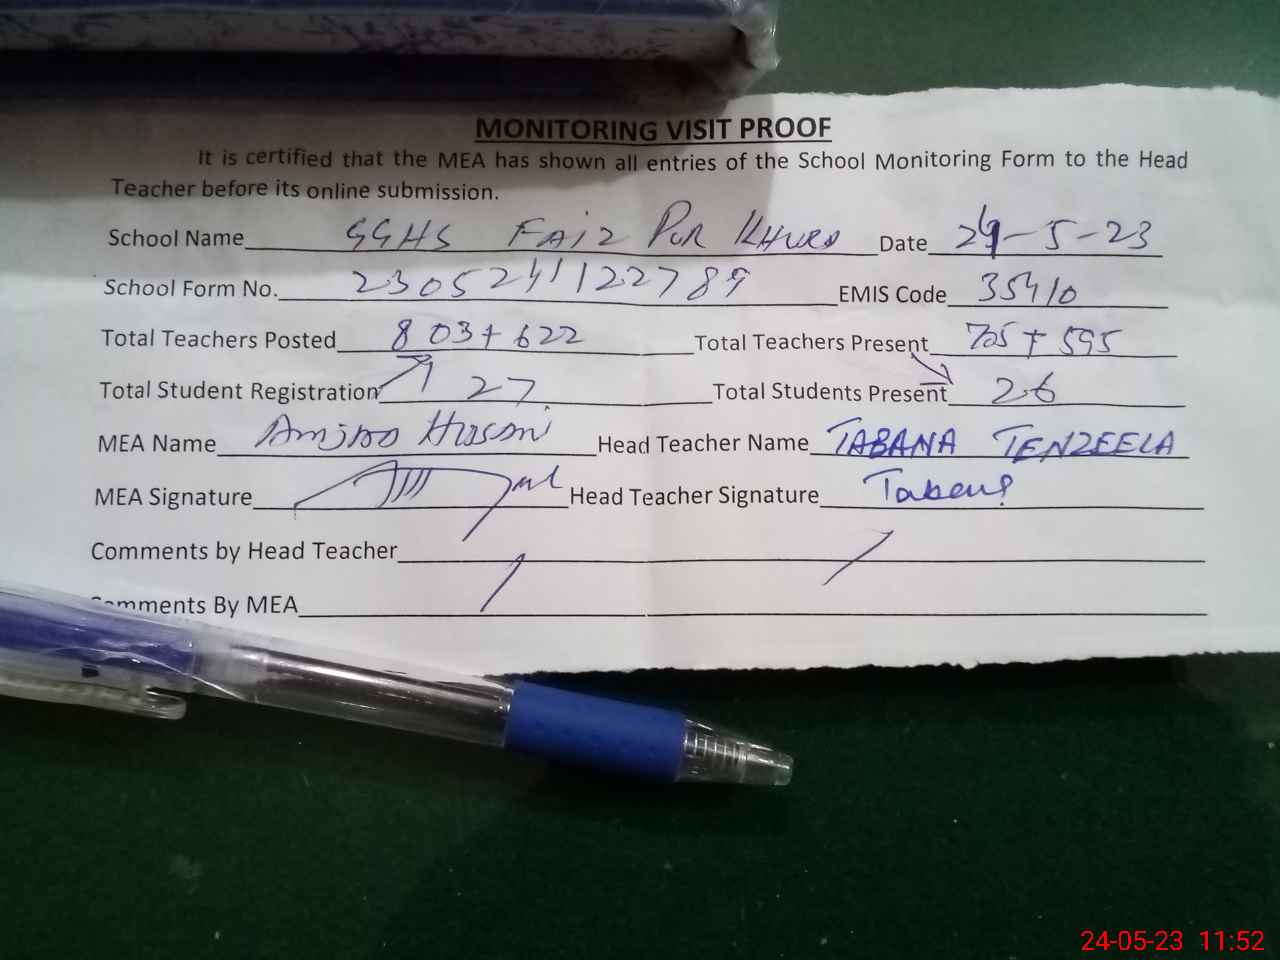 MONITORING VISIT PROOF
It is certified that the MEA has shown all entries of the School Monitoring Form to the Head
Teacher before its online submission.
School Name GGHS FAiz PuR KHURD Date 24-5-23
School Form No. 230524122789 EMIS Code 35410
Total Teachers Posted 803+622 Total Teachers Present 705+595
Total Student Registration 27 Total Students Present 26
MEA Name Head Teacher Name TABANA TENZEELA
MEA Signature Head Teacher Signature
Comments by Head Teacher
Comments By MEA
24-05-23 11:52